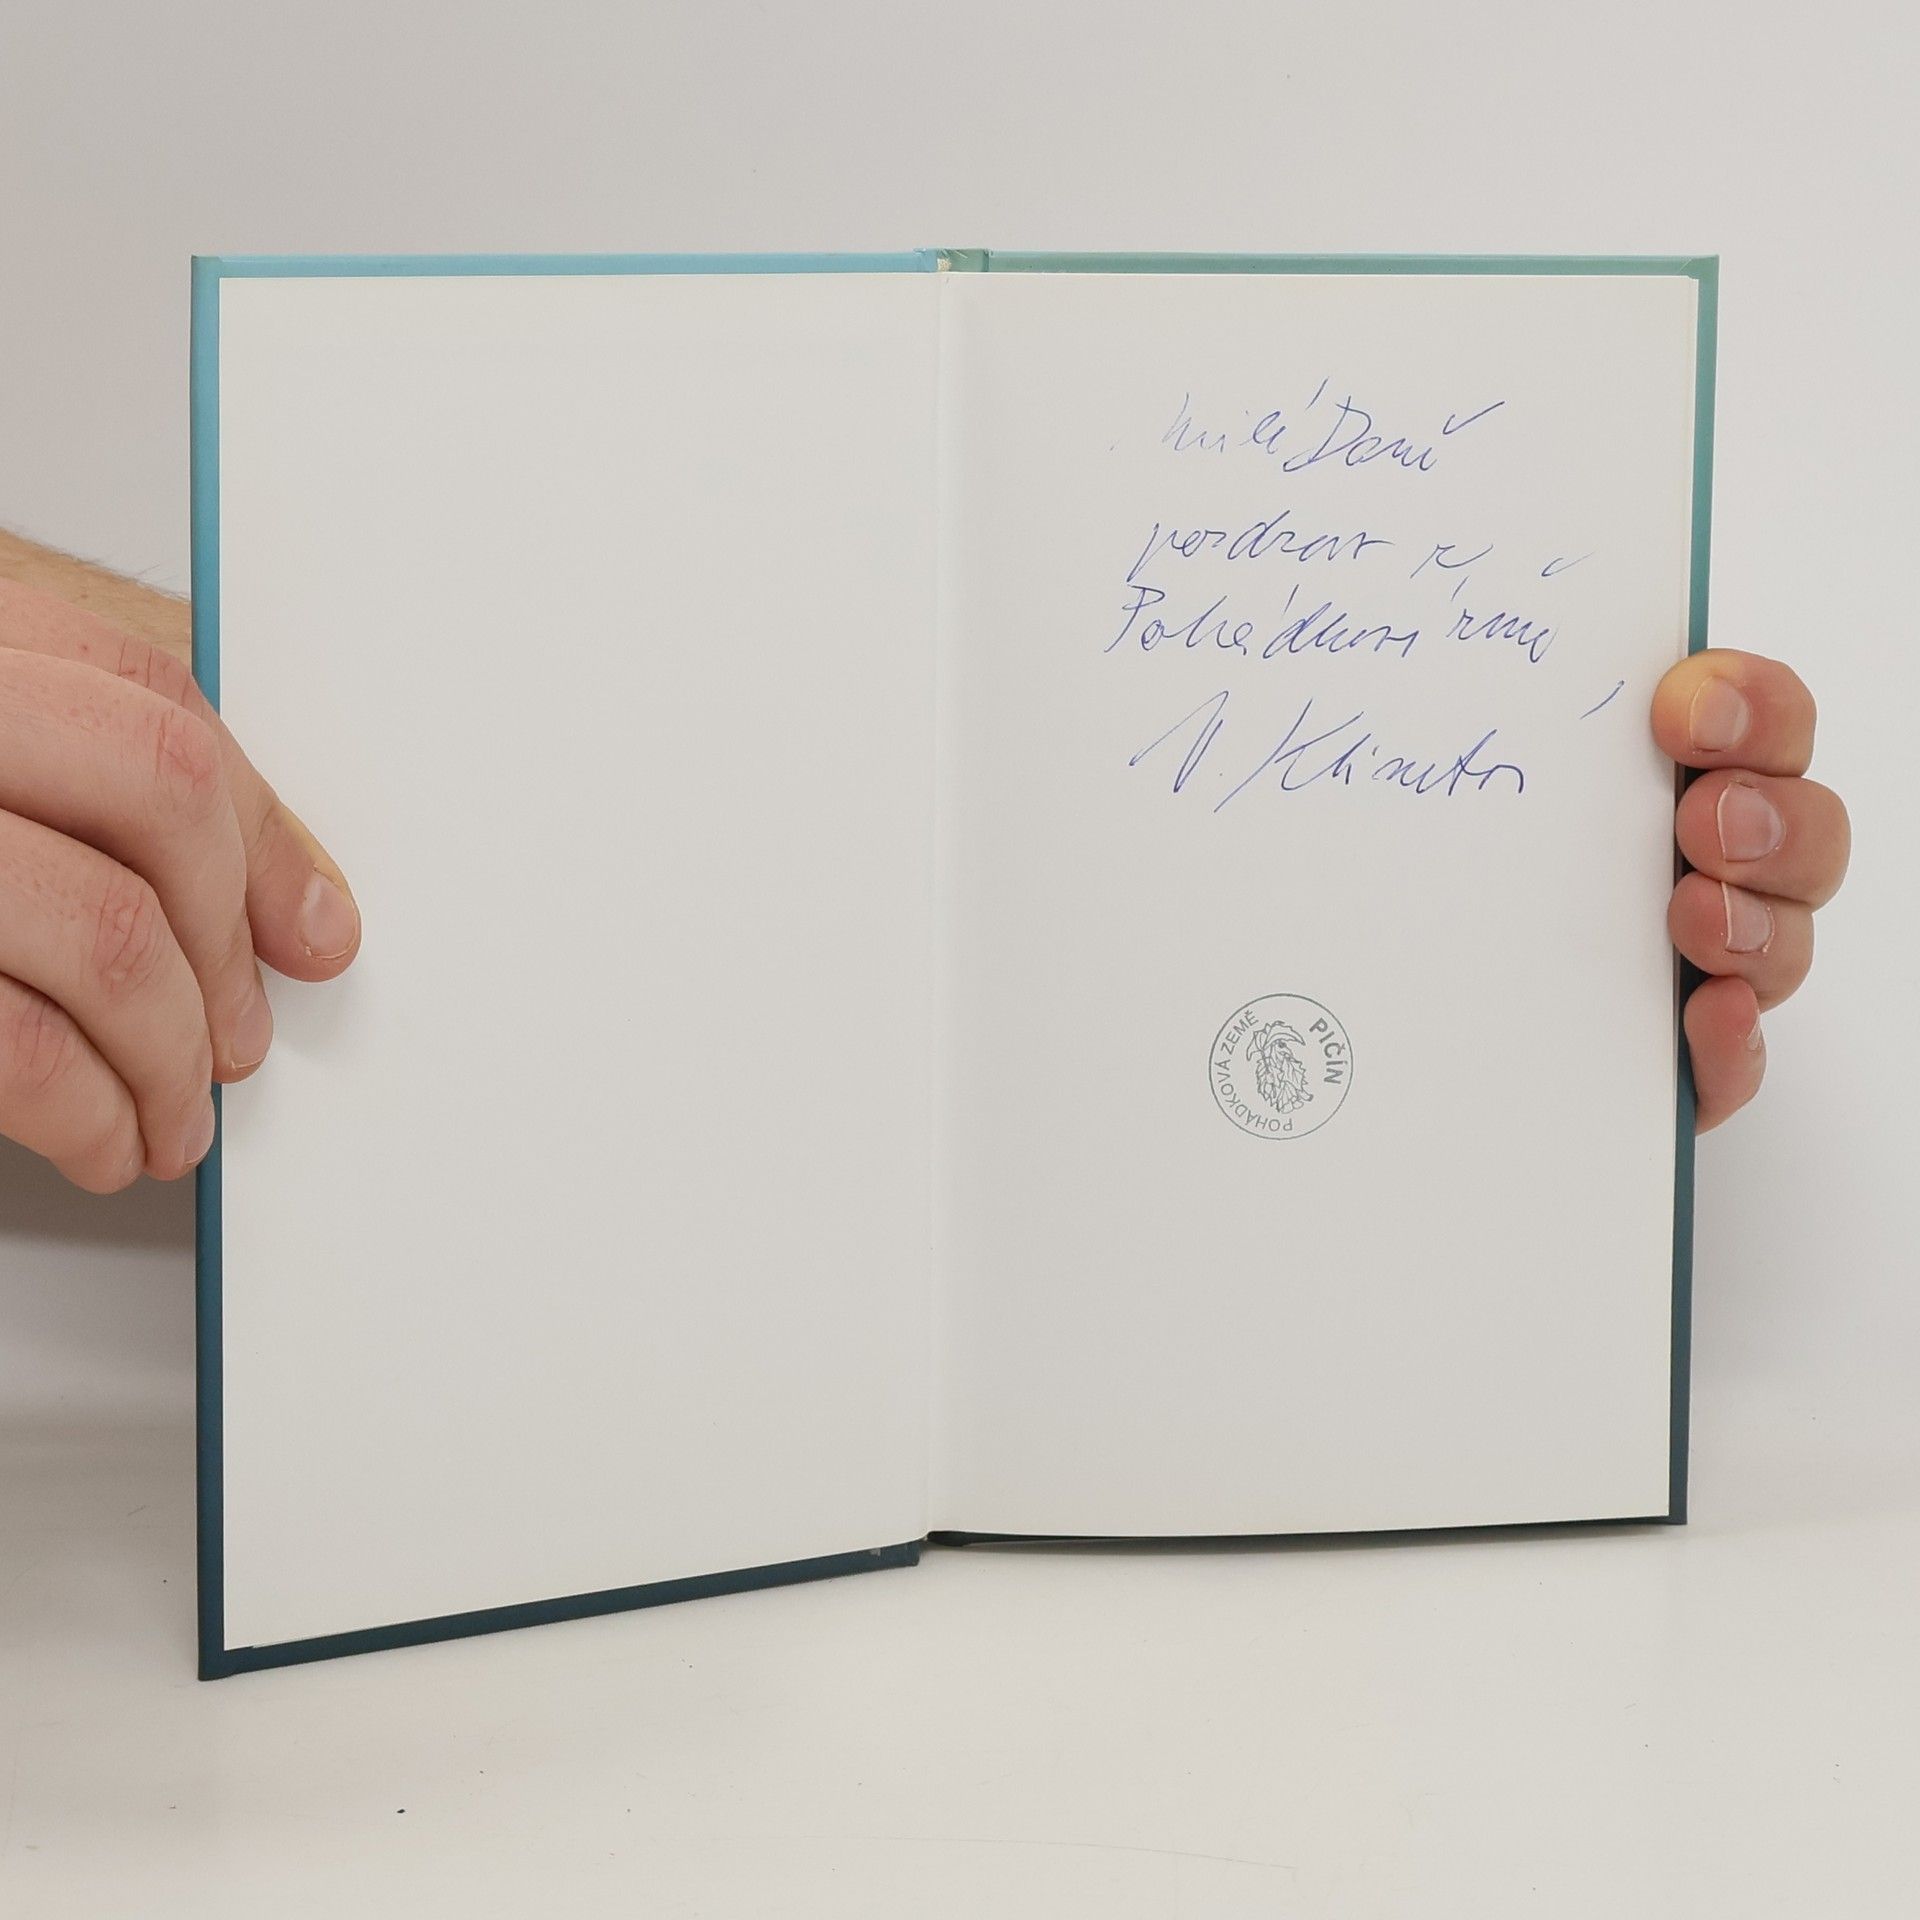 milé Daně
pozdrav z
Pohádkové země
V. Klimtová
POHÁDKOVÁ ZEMĚ PIČÍN